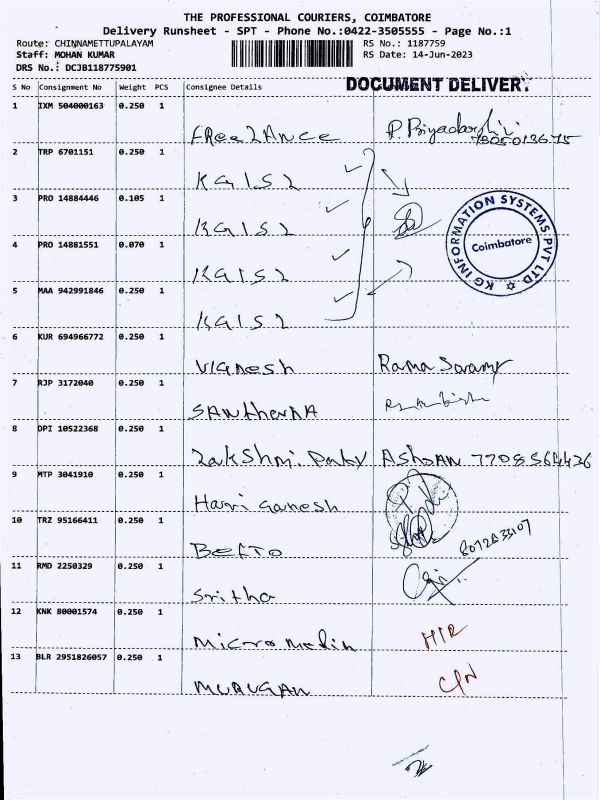 THE PROFESSIONAL COURIERS, COIMBATORE
Delivery Runsheet - SPT - Phone No.:0422-3505555 - Page No.:1
Route: CHINNAMETTUPALAYAM RS No.: 1187759
Staff: MOHAN KUMAR RS Date: 14-Jun-2023
DRS No.: DCJB118775901
DOCUMENT DELIVERY
S No Consignment No Weight PCS Consignee Details
1 IXM 504000163 0.250 1
FREELANCE P. Priyadarshini
7305013675
2 TRP 6701151 0.250 1
KGISL
3 PRO 14884446 0.105 1
KGISL
KG INFORMATION SYSTEMS PVT LTD
Coimbatore
4 PRO 14881551 0.070 1
KGISL
5 MAA 942991846 0.250 1
KGISL
6 KUR 694966772 0.250 1
Vignesh Rama Swamy
7 RJP 3172040 0.250 1
SANthoshA
8 DPI 10522368 0.250 1
Lakshmi Baby AShoAN 7708564436
9 MTP 3041910 0.250 1
Hari Ganesh
10 TRZ 95166411 0.250 1
BEFTO
11 RMD 2250329 0.250 1
Sritha
12 KNK 80001574 0.250 1
Micro Medin MIR
13 BLR 2951826057 0.250 1
MURUGAN C/N